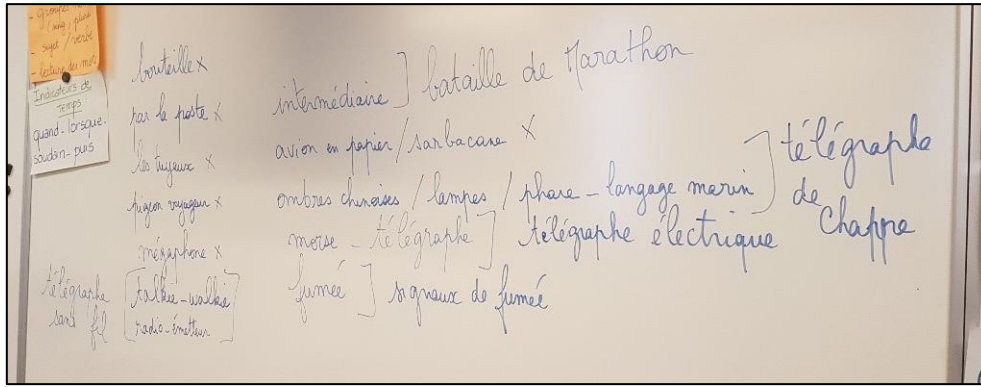 - groupes
(sing, pluriel
- sujet / verbe
- lecture des mots
Indicateurs de
temps
quand - lorsque.
soudain - puis
bouteille x
par la poste x
les tuyaux x
pigeon voyageur x
mégaphone x
télégraphe
sans fil
[ talkie-walkie
radio-émetteur ]
intermédiaire ] bataille de Marathon
avion en papier / sarbacane x
ombres chinoises / lampes / phare - langage marin ] télégraphe
de
Chappe
morse - télégraphe ] télégraphe électrique
fumée ] signaux de fumée